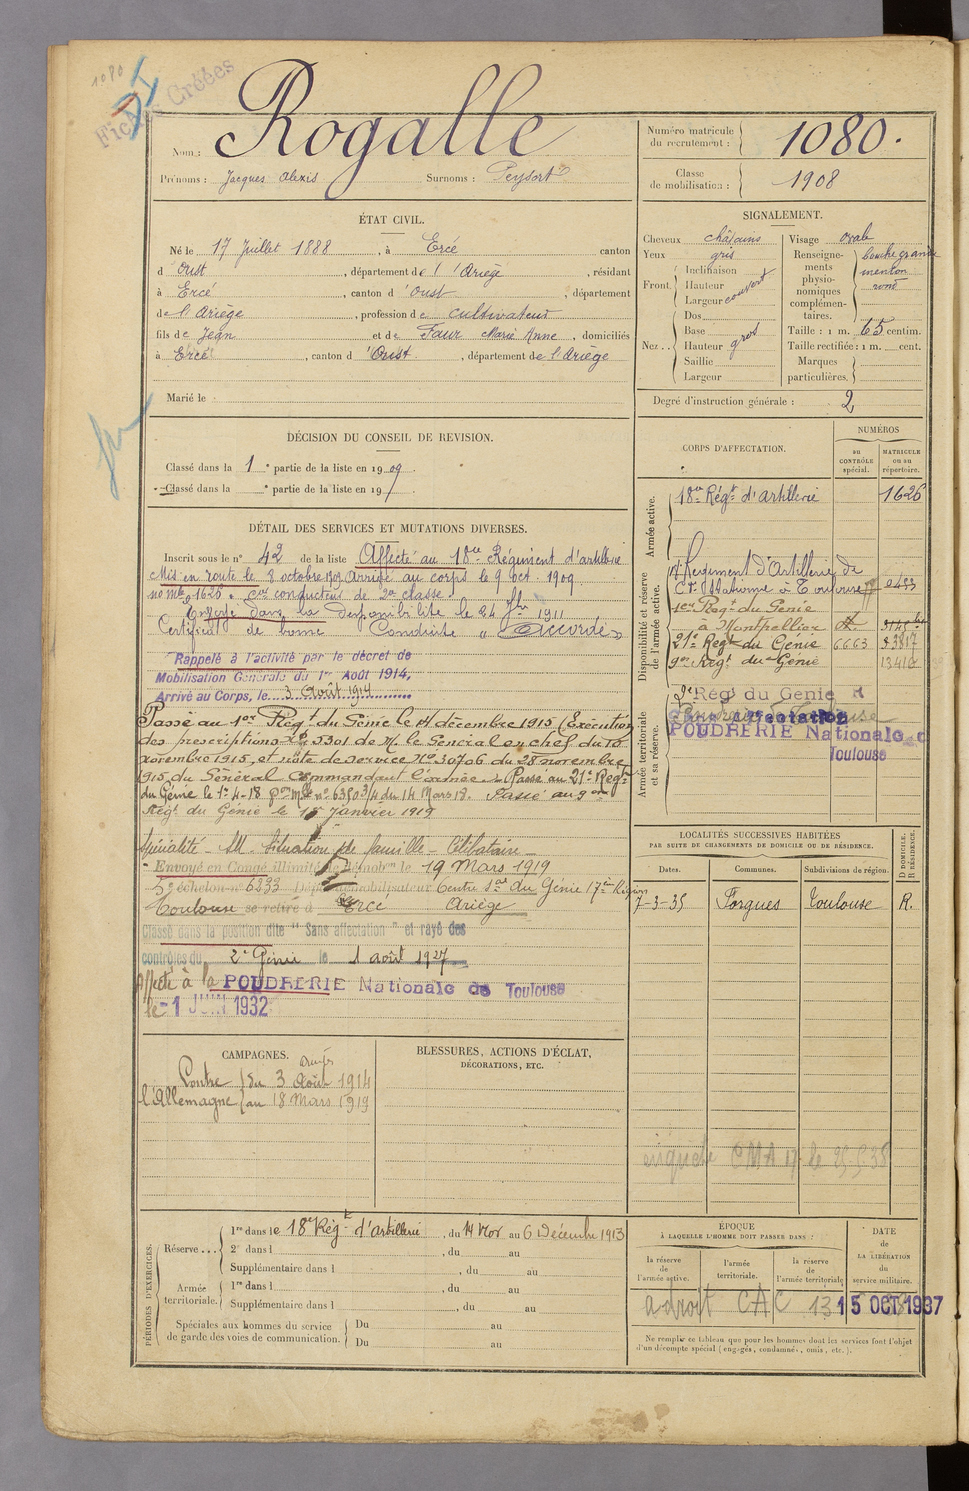 1080
Fiches Créées
Nom : Rogalle
Prénoms : Jacques Alexis Surnoms :
Numéro matricule du recrutement : 1080.
Classe de mobilisation : 1908
ÉTAT CIVIL.
Né le 17 Juillet 1888, à Ercé canton
d'Oust, département de l'Ariège, résidant
à Ercé, canton d'Oust, département
de l'Ariège, profession de cultivateur
fils de Jean et de Faur Marie Anne, domiciliés
à Ercé, canton d'Oust, département de l'Ariège
Marié le
SIGNALEMENT.
Cheveux châtains
Yeux gris
Front. Inclinaison
Hauteur
Largeur couvert
Nez .. Dos
Base
Hauteur gros
Saillie
Largeur
Visage ovale
Renseignements physionomiques complémentaires. bouche grande
menton
rond
Taille : 1 m. 65 centim.
Taille rectifiée : 1 m. cent.
Marques particulières.
Degré d'instruction générale : 2
DÉCISION DU CONSEIL DE REVISION.
Classé dans la 1e partie de la liste en 1909.
Classé dans la e partie de la liste en 19
DÉTAIL DES SERVICES ET MUTATIONS DIVERSES.
Inscrit sous le n° 42 de la liste Affecté au 18e Régiment d'artillerie
Mis en route le 8 octobre 1909 Arrivé au corps le 9 oct. 1909
no mle 1626. conducteur de 2e classe
Envoyé dans la disponibilité le 24 1911
Certificat de bonne Conduite "Accordé"
Rappelé à l'activité par le décret de
Mobilisation Générale du 1er Août 1914,
Arrivé au Corps, le 3 Août 1914
Passé au 1er Régt du Génie le 14 décembre 1915 (Exécution
des prescriptions 5301 de M. le Général en chef du 10
novembre 1915, et note de service N° 30706 du 28 novembre
1915 du Général Commandant l'armée Passé au 21e Régt
du Génie le 1-4-18 du 14 Mars 18. Passé au 9me
Régt du Génie le 15 Janvier 1919
Spécialité Situation de famille - Célibataire
Envoyé en Congé illimité de démobon le 19 Mars 1919
5e échelon n° 6233 Dépôt démobilisateur Centre du Génie 17e Région
Toulouse se retire à Ercé Ariège
Classé dans la position dite "Sans affectation" et rayé des
contrôles du 2e Génie le 1 août 1927
Affecté à la POUDRERIE Nationale de Toulouse
le -1 JUIN 1932
CORPS D'AFFECTATION.
NUMÉROS
au CONTRÔLE spécial.
MATRICULE ou au répertoire.
Armée active.
18e Régt d'artillerie 1626
Disponibilité et réserve de l'armée active.
Régiment d'Artillerie de
Stationné à Toulouse
1er Régt du Génie
à Montpellier
21e Régt du Génie 6663
9me Régt du Génie
Armée territoriale et sa réserve.
2e Régt du Génie
Sans affectation
POUDRERIE Nationale d
Toulouse
LOCALITÉS SUCCESSIVES HABITÉES
PAR SUITE DE CHANGEMENTS DE DOMICILE OU DE RÉSIDENCE.
Dates. Communes. Subdivisions de région. D DOMICILE. R RÉSIDENCE.
7-3-35 Forgues Toulouse R.
CAMPAGNES.
Contre l'Allemagne du 3 Août 1914
au 18 Mars 1919
BLESSURES, ACTIONS D'ÉCLAT,
DÉCORATIONS, ETC.
PÉRIODES D'EXERCICES.
Réserve ... 1re dans le 18e Régt d'artillerie, du 14 Nov au 6 Décembre 1913
2e dans l , du au
Supplémentaire dans l , du au
Armée territoriale. 1re dans l , du au
Supplémentaire dans l , du au
Spéciales aux hommes du service de garde des voies de communication. Du au
Du au
ÉPOQUE
À LAQUELLE L'HOMME DOIT PASSER DANS :
la réserve de l'armée active.
l'armée territoriale.
la réserve de l'armée territoriale
DATE de LA LIBÉRATION du service militaire.
a droit CAC
15 OCT 1937
Ne remplir ce tableau que pour les hommes dont les services font l'objet
d'un décompte spécial (engagés, condamnés, omis, etc.).